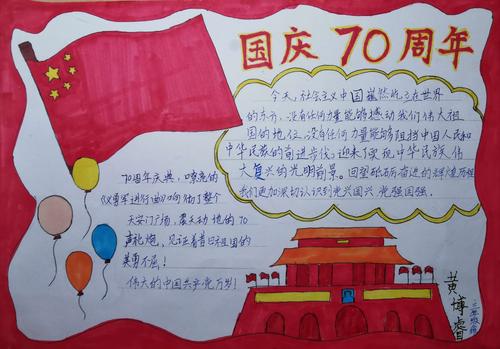 国庆70周年
今天，社会主义中国巍然屹立在世界
的东方，没有任何力量能够撼动我们伟大祖
国的地位，没有任何力量能够阻挡中国人民和
中华民族的前进步伐，迎来了实现中华民族伟
大复兴的光明前景。回望砥砺奋进的辉煌历程
我们更加深切认识到党兴国兴 党强国强。
70周年庆典，嘹亮的
《义勇军进行曲》响彻了整个
天安门广场，震天动地的70
声礼炮，见证着昔日祖国的
英勇不屈！
伟大的中国共产党万岁！
黄博睿